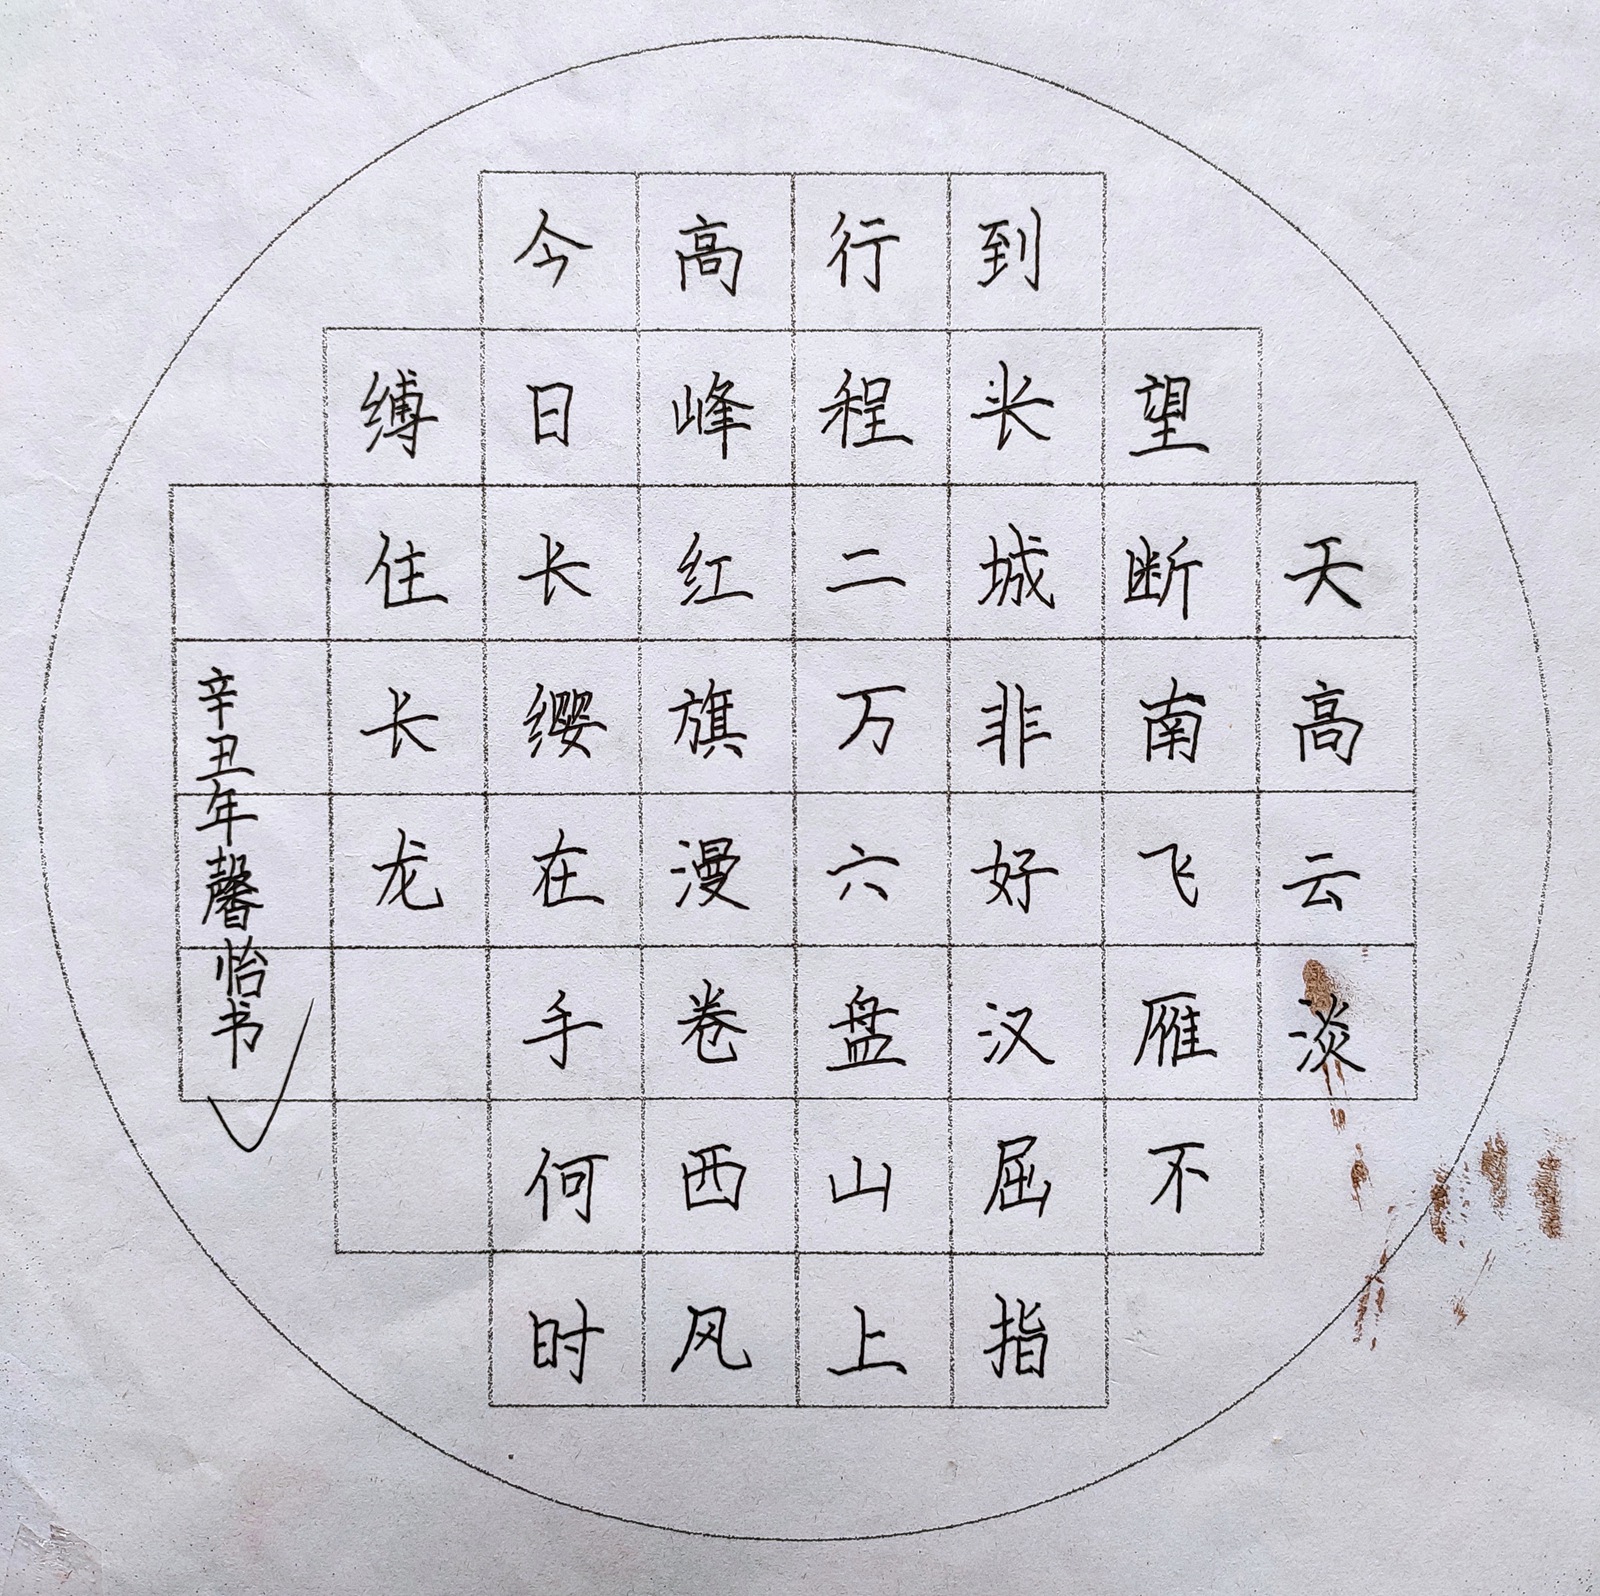 天高云淡
望断南飞雁不
到长城非好汉屈指
行程二万六盘山上
高峰红旗漫卷西风
今日长缨在手何时
缚住长龙
辛丑年馨怡书